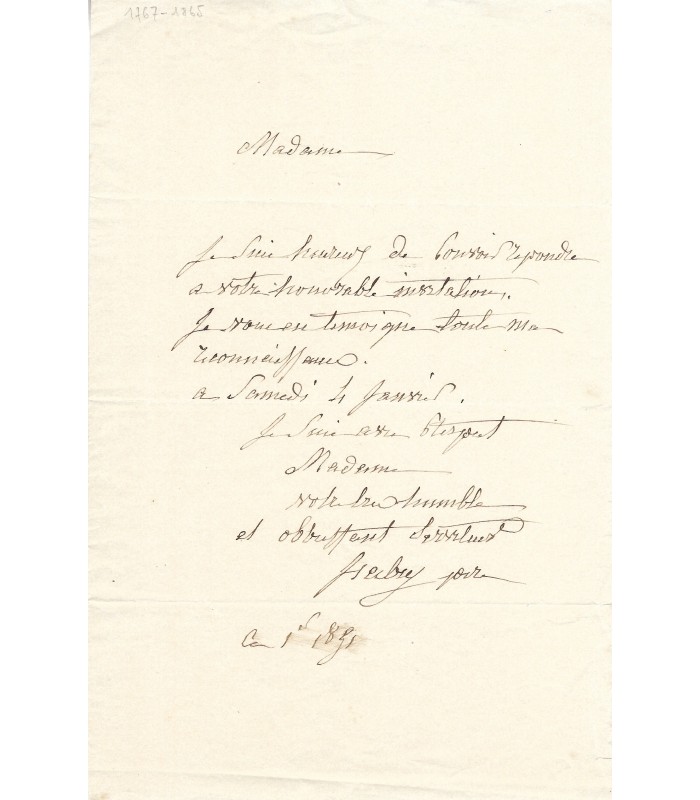 1767-1865
Madame
Je suis heureux de pouvoir repondre
a votre honorable invitation.
Je vous en temoigne toute ma
reconnaissance.
a Samedi 4 Janvier.
Je suis avec respect
Madame
votre tres humble
et obbeissant serviteur
père
Ce 1er 1851